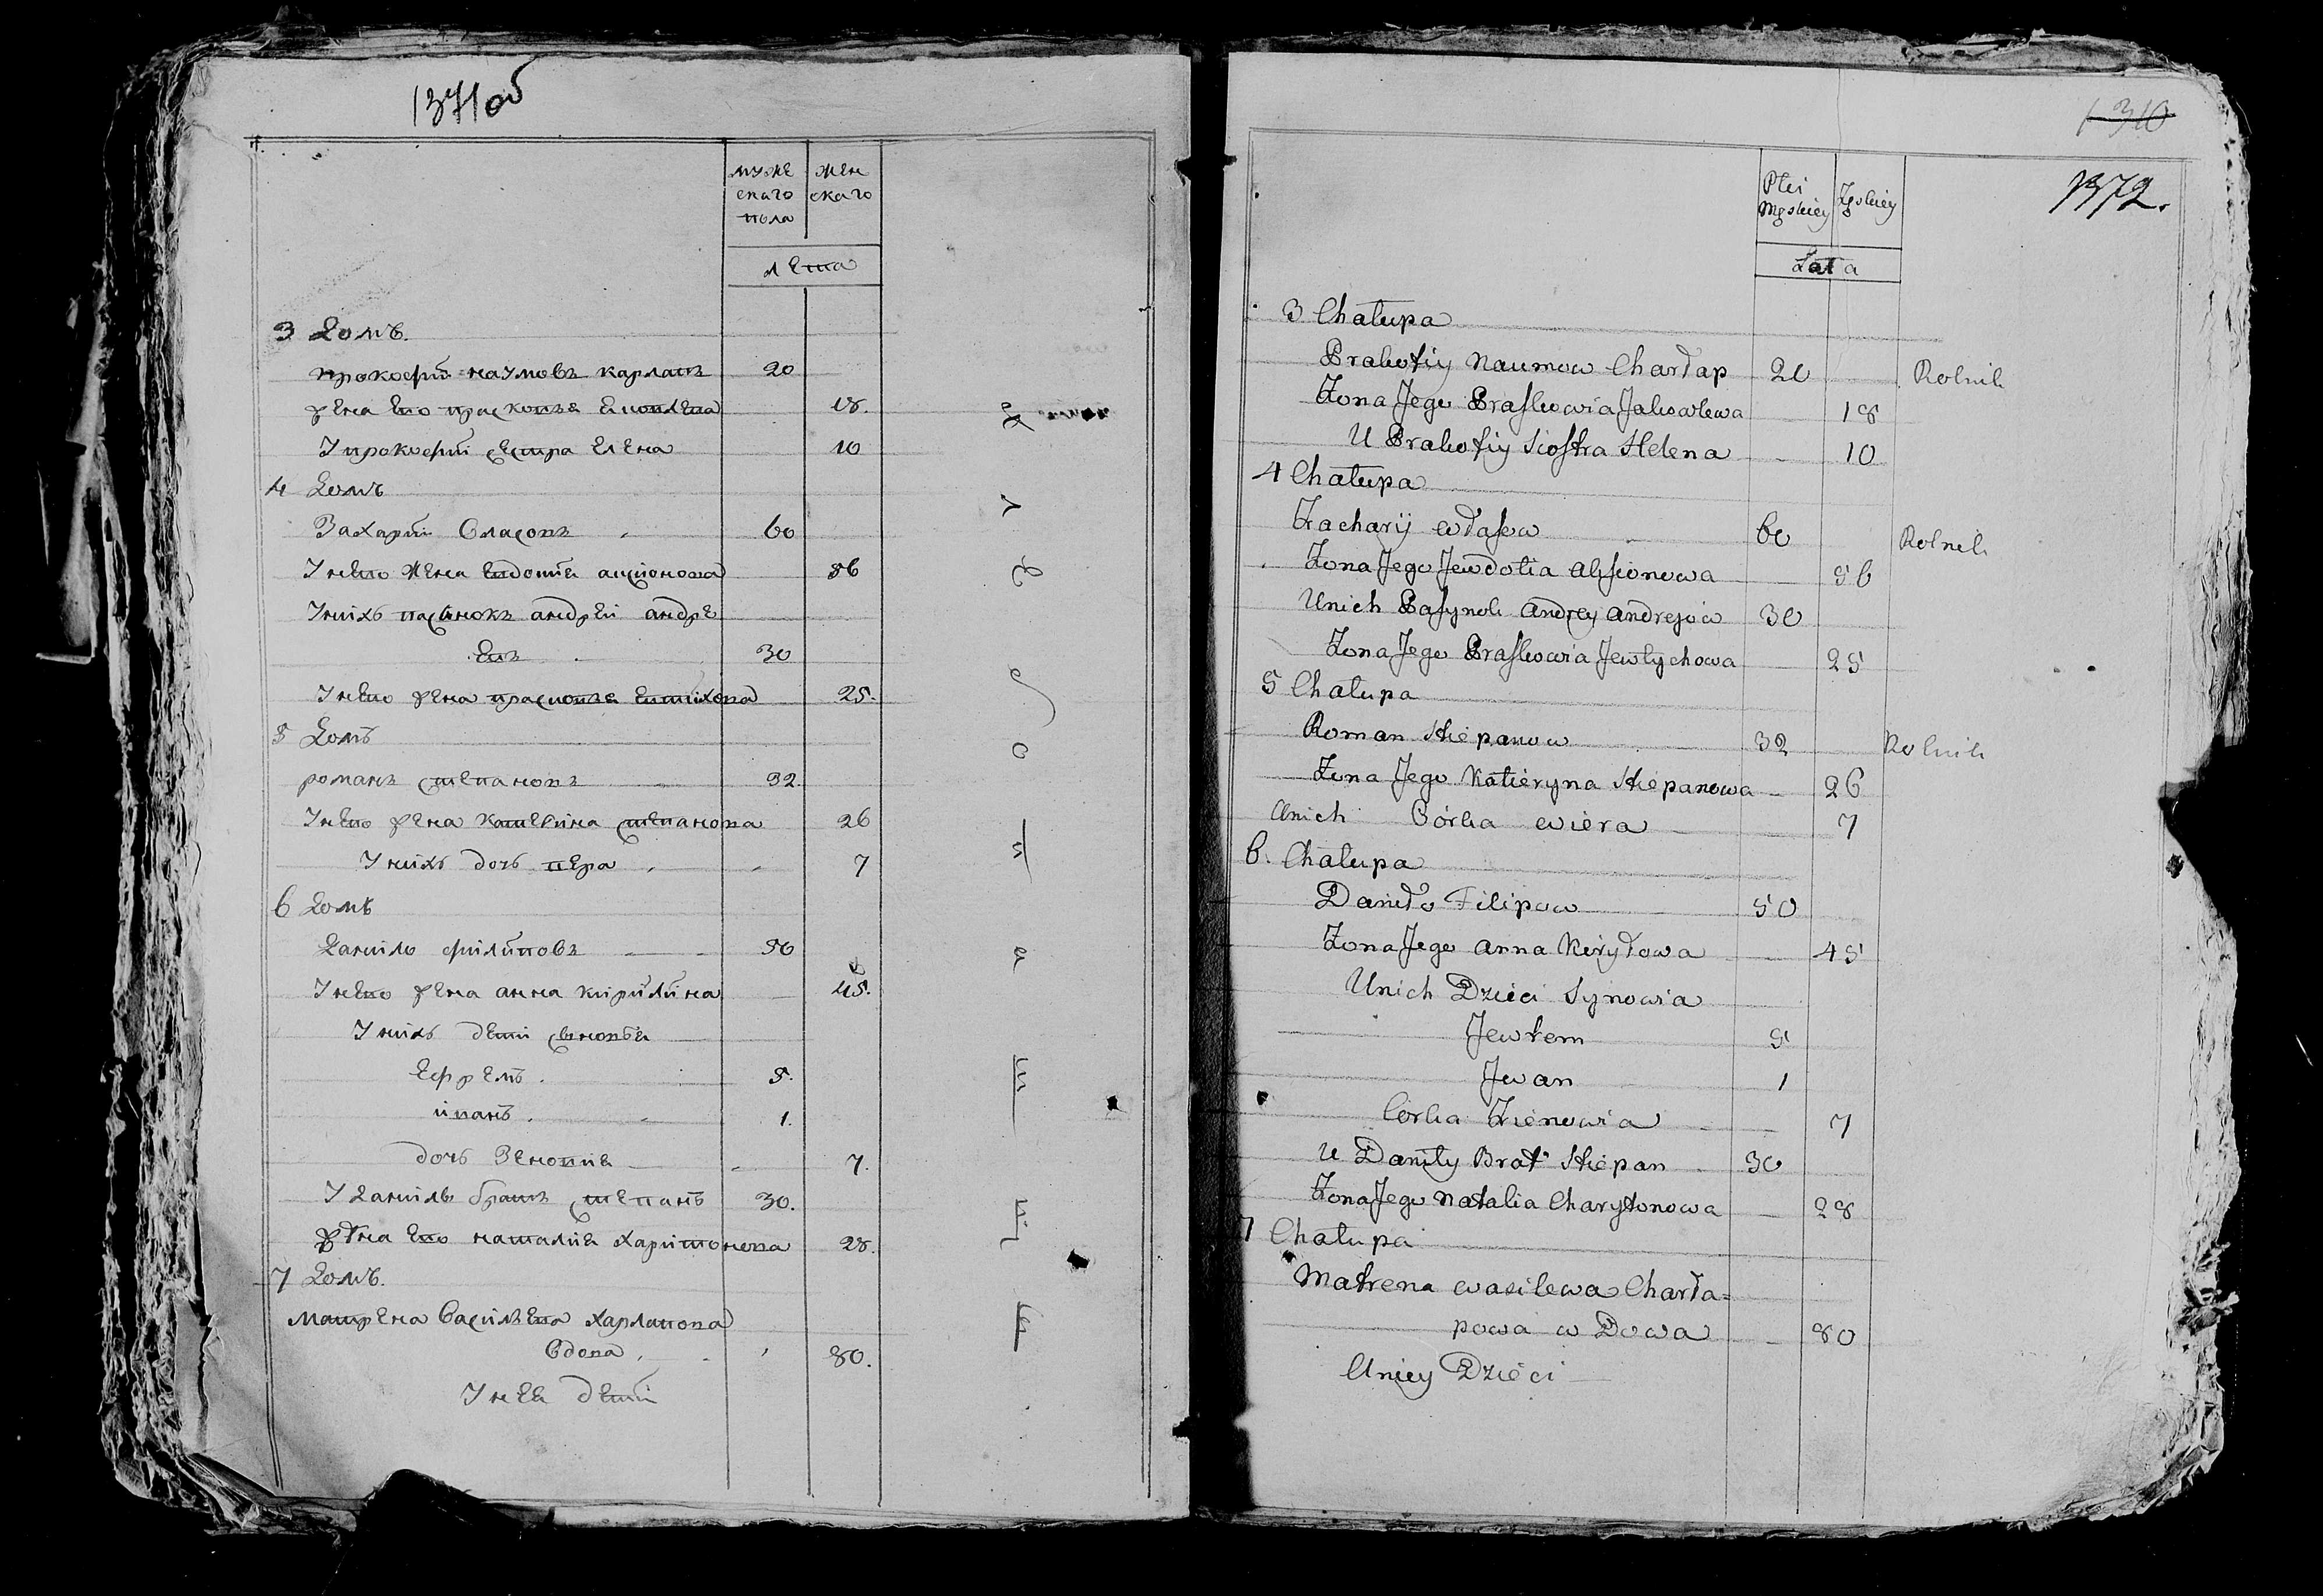 1371об
муже
скаго
пола
жен
скаго
лета
3 Домъ.
прокофiй наумовъ харлапъ 20
жена его прасковъя яковлева 18.
У прокофiй сестра елена 10
4 Домъ
Захарiй Власовъ 60
У нево жена евдотiя
У нихъ пасынокъ андрей андре
евъ 30
У нево жена прасковъя евтихова 25.
5 Домъ
романъ степановъ 32.
У нево жена катерiна степанова 26
У нихъ дочь вера 7
6 Домъ
Данiло филiповъ 50
У нево жена анна кирiлiна 45.
У нихъ детi сыновья
Ефремъ. 5.
iванъ. 1.
дочь Зеновiя 7.
У Данiлы братъ степанъ 30.
жена его наталiя харiтонова 28.
7 Домъ.
матрена Василева харлапова
Вдова 80.
У нея детi
1310
1372.
Płci
Męskiey
Żęskiey
Lata
3 Chałupa
Prakofiy Naumow Charłap 20 Rolnik
Żona Jego Praskowia Jakowlewa 18
U Prakofiy Siostra Helena 10
4 Chałupa
Zacharij Własow 60 Rolnik
Żona Jego Jewdotia Alxionowa 56
U nich Pasynok Andrey Andrejow 30
Żona Jego Praskowia Jewtychowa 25
5 Chałupa
Roman Stiepanow 32 Rolnik
Żona Jego Katieryna Stiepanowa 26
U nich Córka Wiera 7
6. Chałupa
Daniło Filipow 50
Żona Jego Anna Kiryłowa 45
U nich Dzieci Synowia
Jewrem 5
Jwan 1
Córka Zienowia 7
U Daniły Brat Stiepan 30
Żona Jego Natalia Charytonowa 28
7 Chałupa
Matrena Wasilewa Charła=
powa wDowa 80
U niey Dzieci